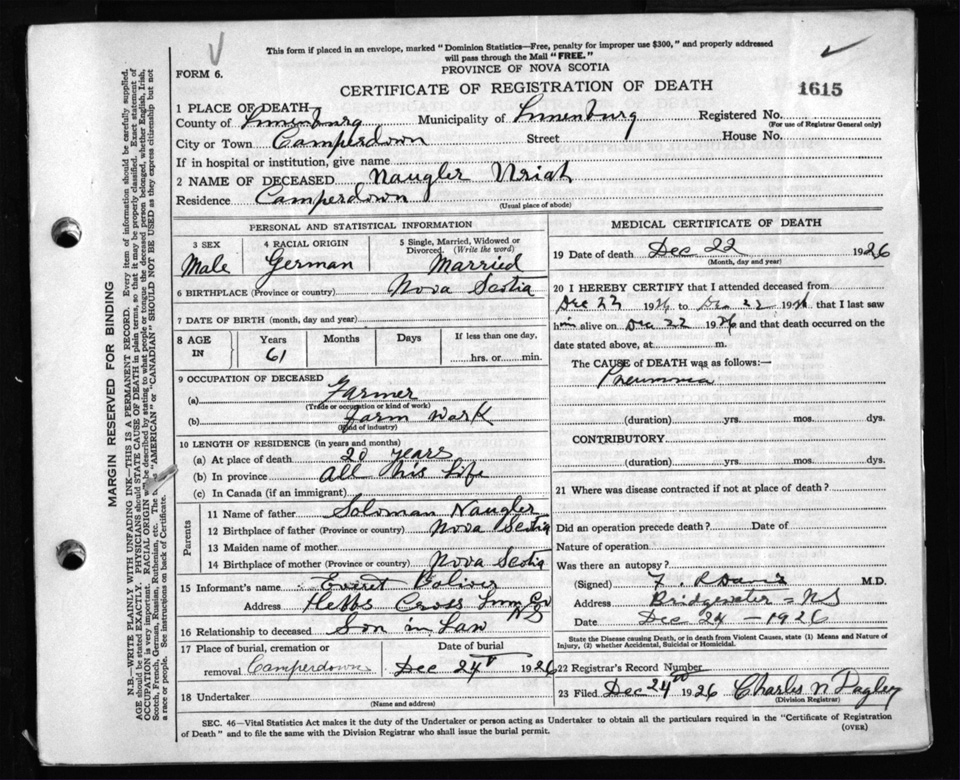 This form if placed in an envelope, marked "Dominion Statistics—Free, penalty for improper use $300," and properly addressed
will pass through the Mail "FREE."
FORM 6.
PROVINCE OF NOVA SCOTIA
CERTIFICATE OF REGISTRATION OF DEATH
1615
1 PLACE OF DEATH
County of Lunenburg Municipality of Lunenburg Registered No.
(For use of Registrar General only)
City or Town Camperdown Street House No.
If in hospital or institution, give name
2 NAME OF DECEASED Naugler Uriah
Residence Camperdown
(Usual place of abode)
PERSONAL AND STATISTICAL INFORMATION
3 SEX 4 RACIAL ORIGIN 5 Single, Married, Widowed or
Divorced. (Write the word)
Male German Married
6 BIRTHPLACE (Province or country) Nova Scotia
7 DATE OF BIRTH (month, day and year)
8 AGE IN Years Months Days If less than one day,
61 hrs. or min.
9 OCCUPATION OF DECEASED
(a) Farmer
(Trade or occupation or kind of work)
(b) Farm Work
(Kind of industry)
10 LENGTH OF RESIDENCE (in years and months)
(a) At place of death 20 years
(b) In province all his life
(c) In Canada (if an immigrant)
Parents
11 Name of father Soloman Naugler
12 Birthplace of father (Province or country) Nova Scotia
13 Maiden name of mother
14 Birthplace of mother (Province or country) Nova Scotia
15 Informant's name Everet Boliver
Address Hebbs Cross Lun Co
NS
16 Relationship to deceased Son in Law
17 Place of burial, cremation or Date of burial
removal Camperdown Dec 24 1926
18 Undertaker
(Name and address)
MEDICAL CERTIFICATE OF DEATH
19 Date of death Dec 22 1926
(Month, day and year)
20 I HEREBY CERTIFY that I attended deceased from
Dec 22 1926 to Dec 22 1926 that I last saw
him alive on Dec 22 1926 and that death occurred on the
date stated above, at m.
The CAUSE of DEATH was as follows:—
Pneumonia
(duration) yrs. mos. dys.
CONTRIBUTORY
(duration) yrs. mos. dys.
21 Where was disease contracted if not at place of death?
Did an operation precede death? Date of
Nature of operation
Was there an autopsy?
(Signed) F. R Davis M.D.
Address Bridgewater = NS
Date Dec 24 – 1926
State the Disease causing Death, or in death from Violent Causes, state (1) Means and Nature of
Injury, (2) whether Accidental, Suicidal or Homicidal.
22 Registrar's Record Number
23 Filed Dec 24 1926 Charles N
(Division Registrar)
SEC. 46—Vital Statistics Act makes it the duty of the Undertaker or person acting as Undertaker to obtain all the particulars required in the "Certificate of Registration
of Death" and to file the same with the Division Registrar who shall issue the burial permit.
(OVER)
MARGIN RESERVED FOR BINDING
N.B.—WRITE PLAINLY WITH UNFADING INK—THIS IS A PERMANENT RECORD. Every item of information should be carefully supplied.
AGE should be stated EXACTLY. PHYSICIANS should STATE CAUSE OF DEATH in plain terms, so that it may be properly classified. Exact statement of
OCCUPATION is very important. RACIAL ORIGIN will be described by stating to what people or tongue the deceased person belonged, whether English, Irish,
Scotch, French, German, Russian, Ruthenian, etc. The "AMERICAN" or "CANADIAN" SHOULD NOT BE USED as they express citizenship but not
a race or people. See instructions on back of Certificate.